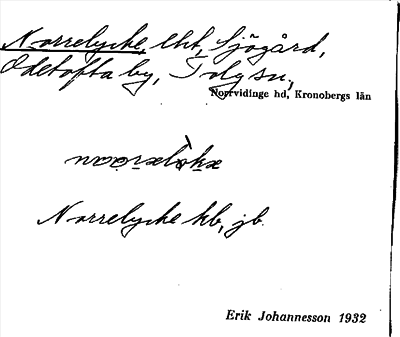 Norrelycke, lht, Sjögård,
Odetofta by, Tolg sn,
Norrvidinge hd, Kronobergs län
Norrelycke hb, jb.
Erik Johannesson 1932